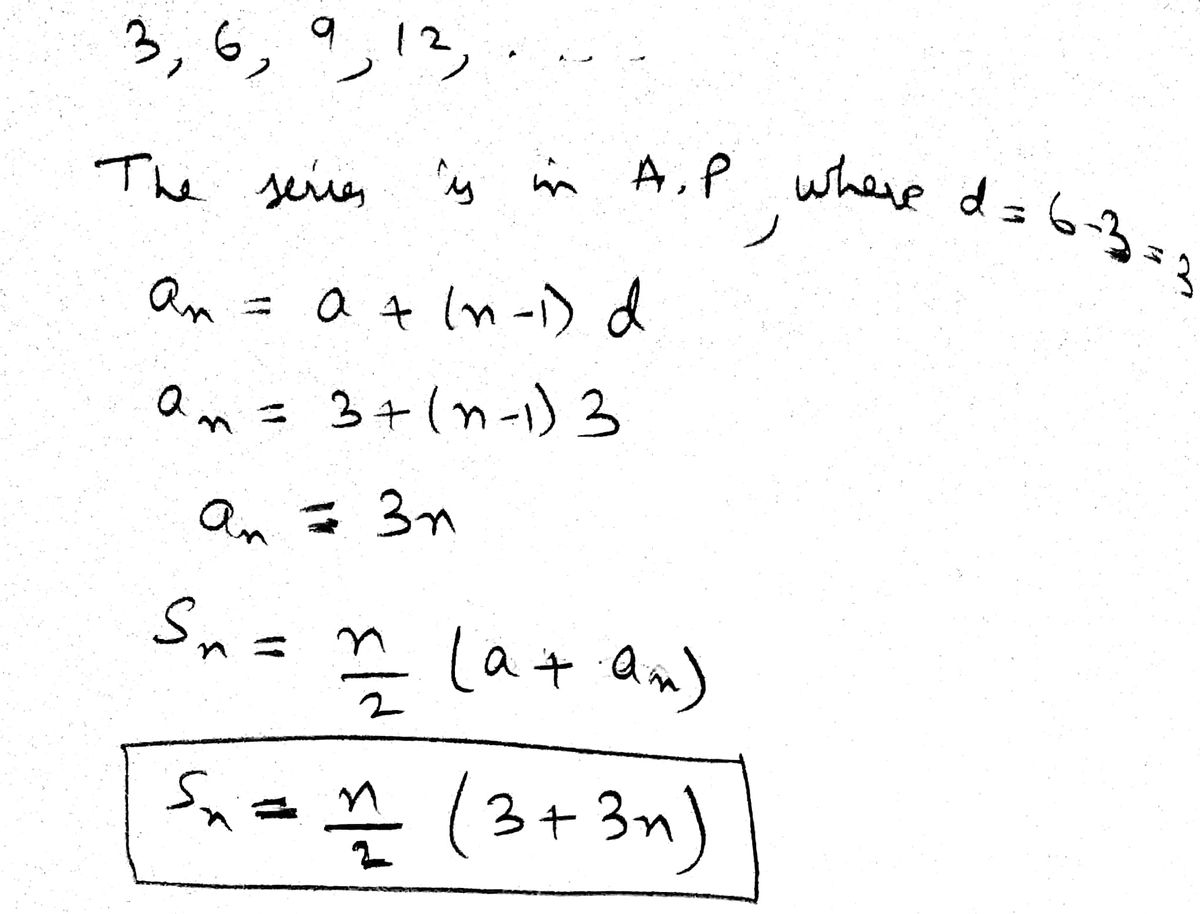 3, 6, 9, 12, .....
The series is in A.P, where d = 6-3 = 3
an = a + (n-1) d
an = 3+(n-1) 3
an = 3n
Sn = n/2 (a + an)
Sn = n/2 (3+3n)